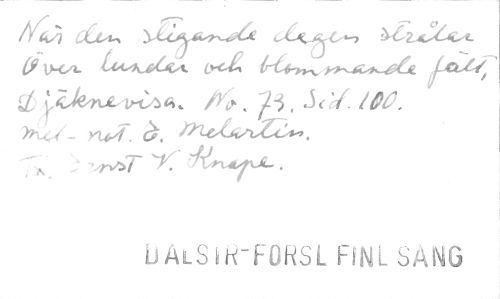 När den stigande dagen strålar
Över lundar och blommande fält,
Djäknevisa. No. 73. Sid. 100.
mel-not. E. Melartin.
Tx. Ernst V. Knape.
DALSTR-FORSL FINL SÅNG